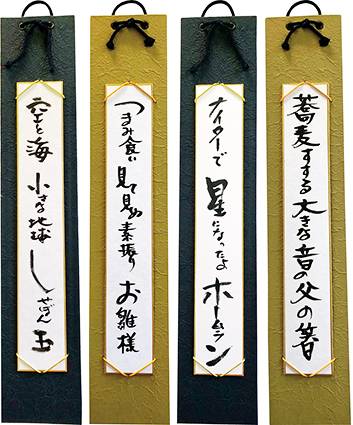 蕎麦すする大きな音の父の箸
ナイターで星になったよホームラン
つまみ食い見て見ぬ素振りお雛様
空と海小さな地球しゃぼん玉